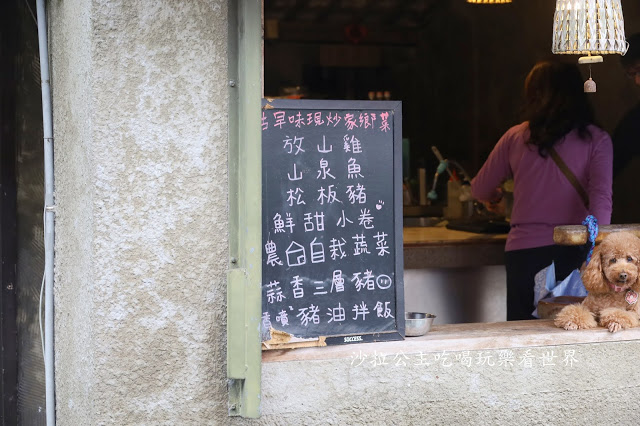 古早味現炒家鄉菜
放山雞
山泉魚
松板豬
鮮甜小卷
農自栽蔬菜
蒜香三層豬
香噴豬油拌飯
SUCCESS.
沙拉公主吃喝玩樂看世界